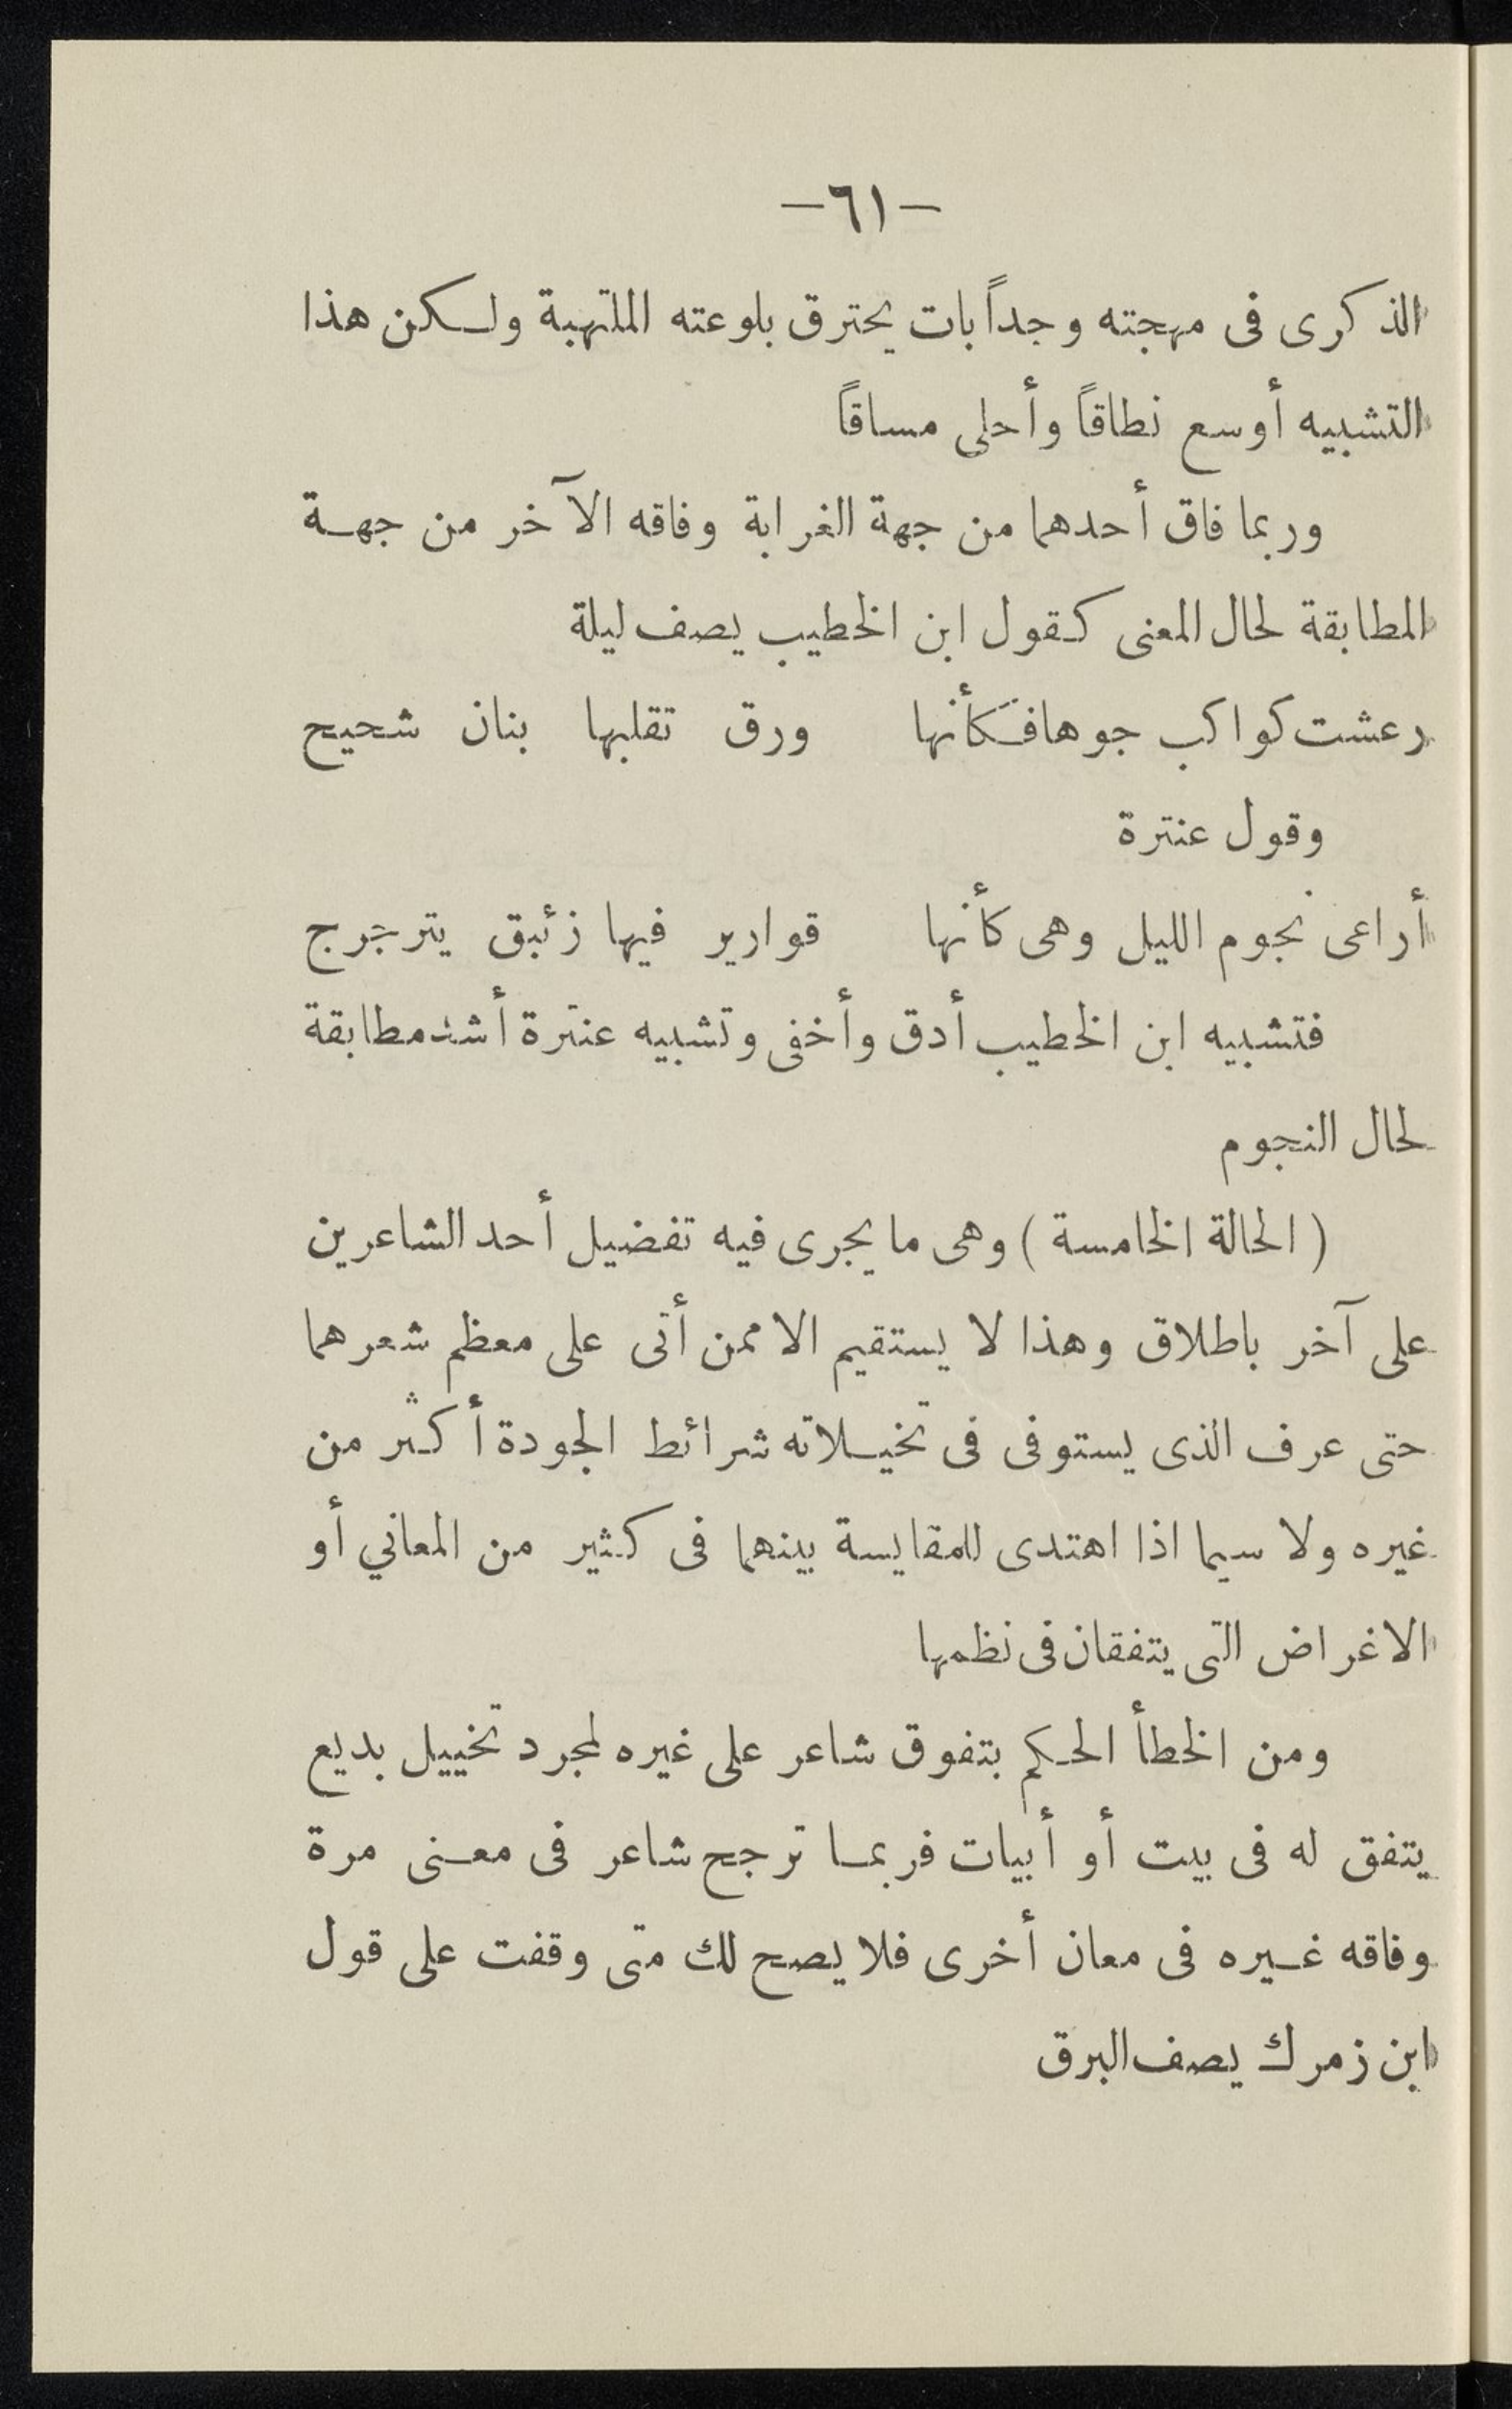 —٦١—
الذكرى فى مهجته وجداً بات يحترق بلوعته الملتهبة ولكن هذا
التشبيه أوسع نطاقاً وأحلى مساقاً
وربما فاق أحدهما من جهة الغرابة وفاقه الآخر من جهة
المطابقة لحال المعنى كقول ابن الخطيب يصف ليلة
رعشت كواكب جوها فكأنها ورق تقلبها بنان شحيح
وقول عنترة
أراعى نجوم الليل وهى كأنها قوارير فيها زئبق يترجرج
فتشبيه ابن الخطيب أدق وأخفى وتشبيه عنترة أشد مطابقة
لحال النجوم
(الحالة الخامسة) وهى ما يجرى فيه تفضيل أحد الشاعرين
على آخر باطلاق وهذا لا يستقيم الا ممن أتى على معظم شعرهما
حتى عرف الذى يستوفى فى تخيلاته شرائط الجودة أكثر من
غيره ولا سيما اذا اهتدى للمقايسة بينهما فى كثير من المعاني أو
الاغراض التى يتفقان فى نظمها
ومن الخطأ الحكم بتفوق شاعر على غيره لمجرد تخييل بديع
يتفق له فى بيت أو أبيات فربما ترجح شاعر فى معنى مرة
وفاقه غيره فى معان أخرى فلا يصح لك متى وقفت على قول
ابن زمرك يصف البرق